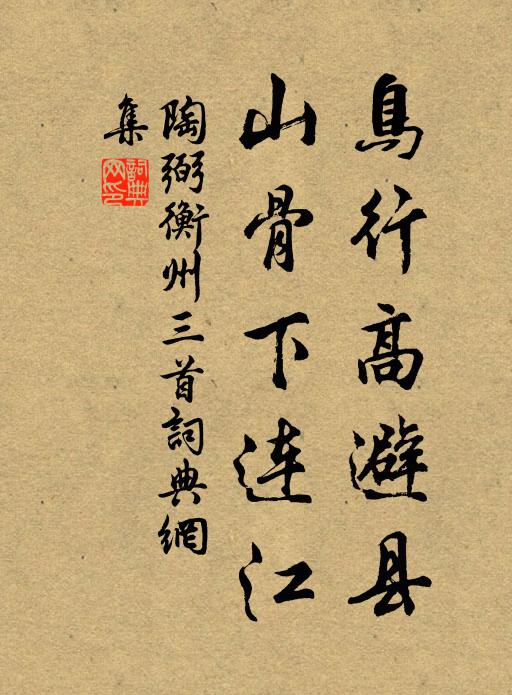 鳥行高避县
山骨下连江
陶弼衡州三首詞典網
集
詞典網印